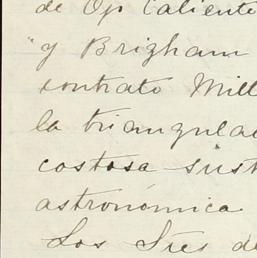 de Ojo Caliente
"y Brigham
contrato Mill
la triangulac
costosa sust
astronómica
Los Sres de